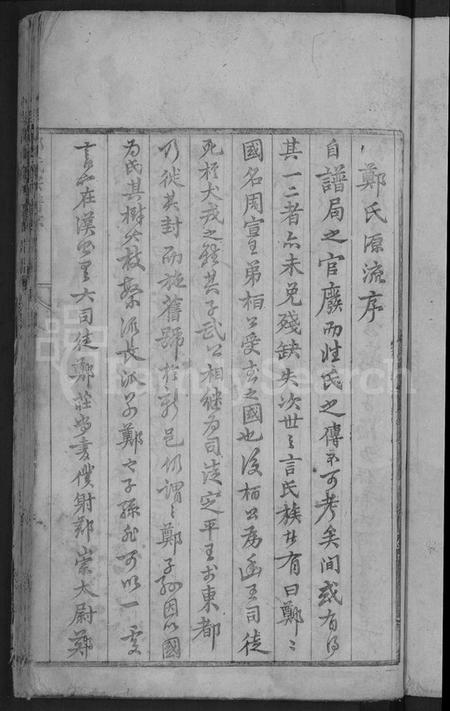 鄭氏源流序
自譜局之官廢而姓氏之傳不可考矣間或有得
其一二者亦未免殘缺失次世之言氏族壮有曰鄭〻
國名周宣王弟桓公受封之國也後桓公為幽王司徒
死於犬戎之難其子武公相继為司徒定平王于東都
乃徙其封而施舊號於新邑仍謂〻鄭子孫因以國
為氏其樹大枝繁源長派鄭〻子孫非可以一
在漢大司徒鄭莊尚書僕射鄭崇太尉鄭
FamilySearch